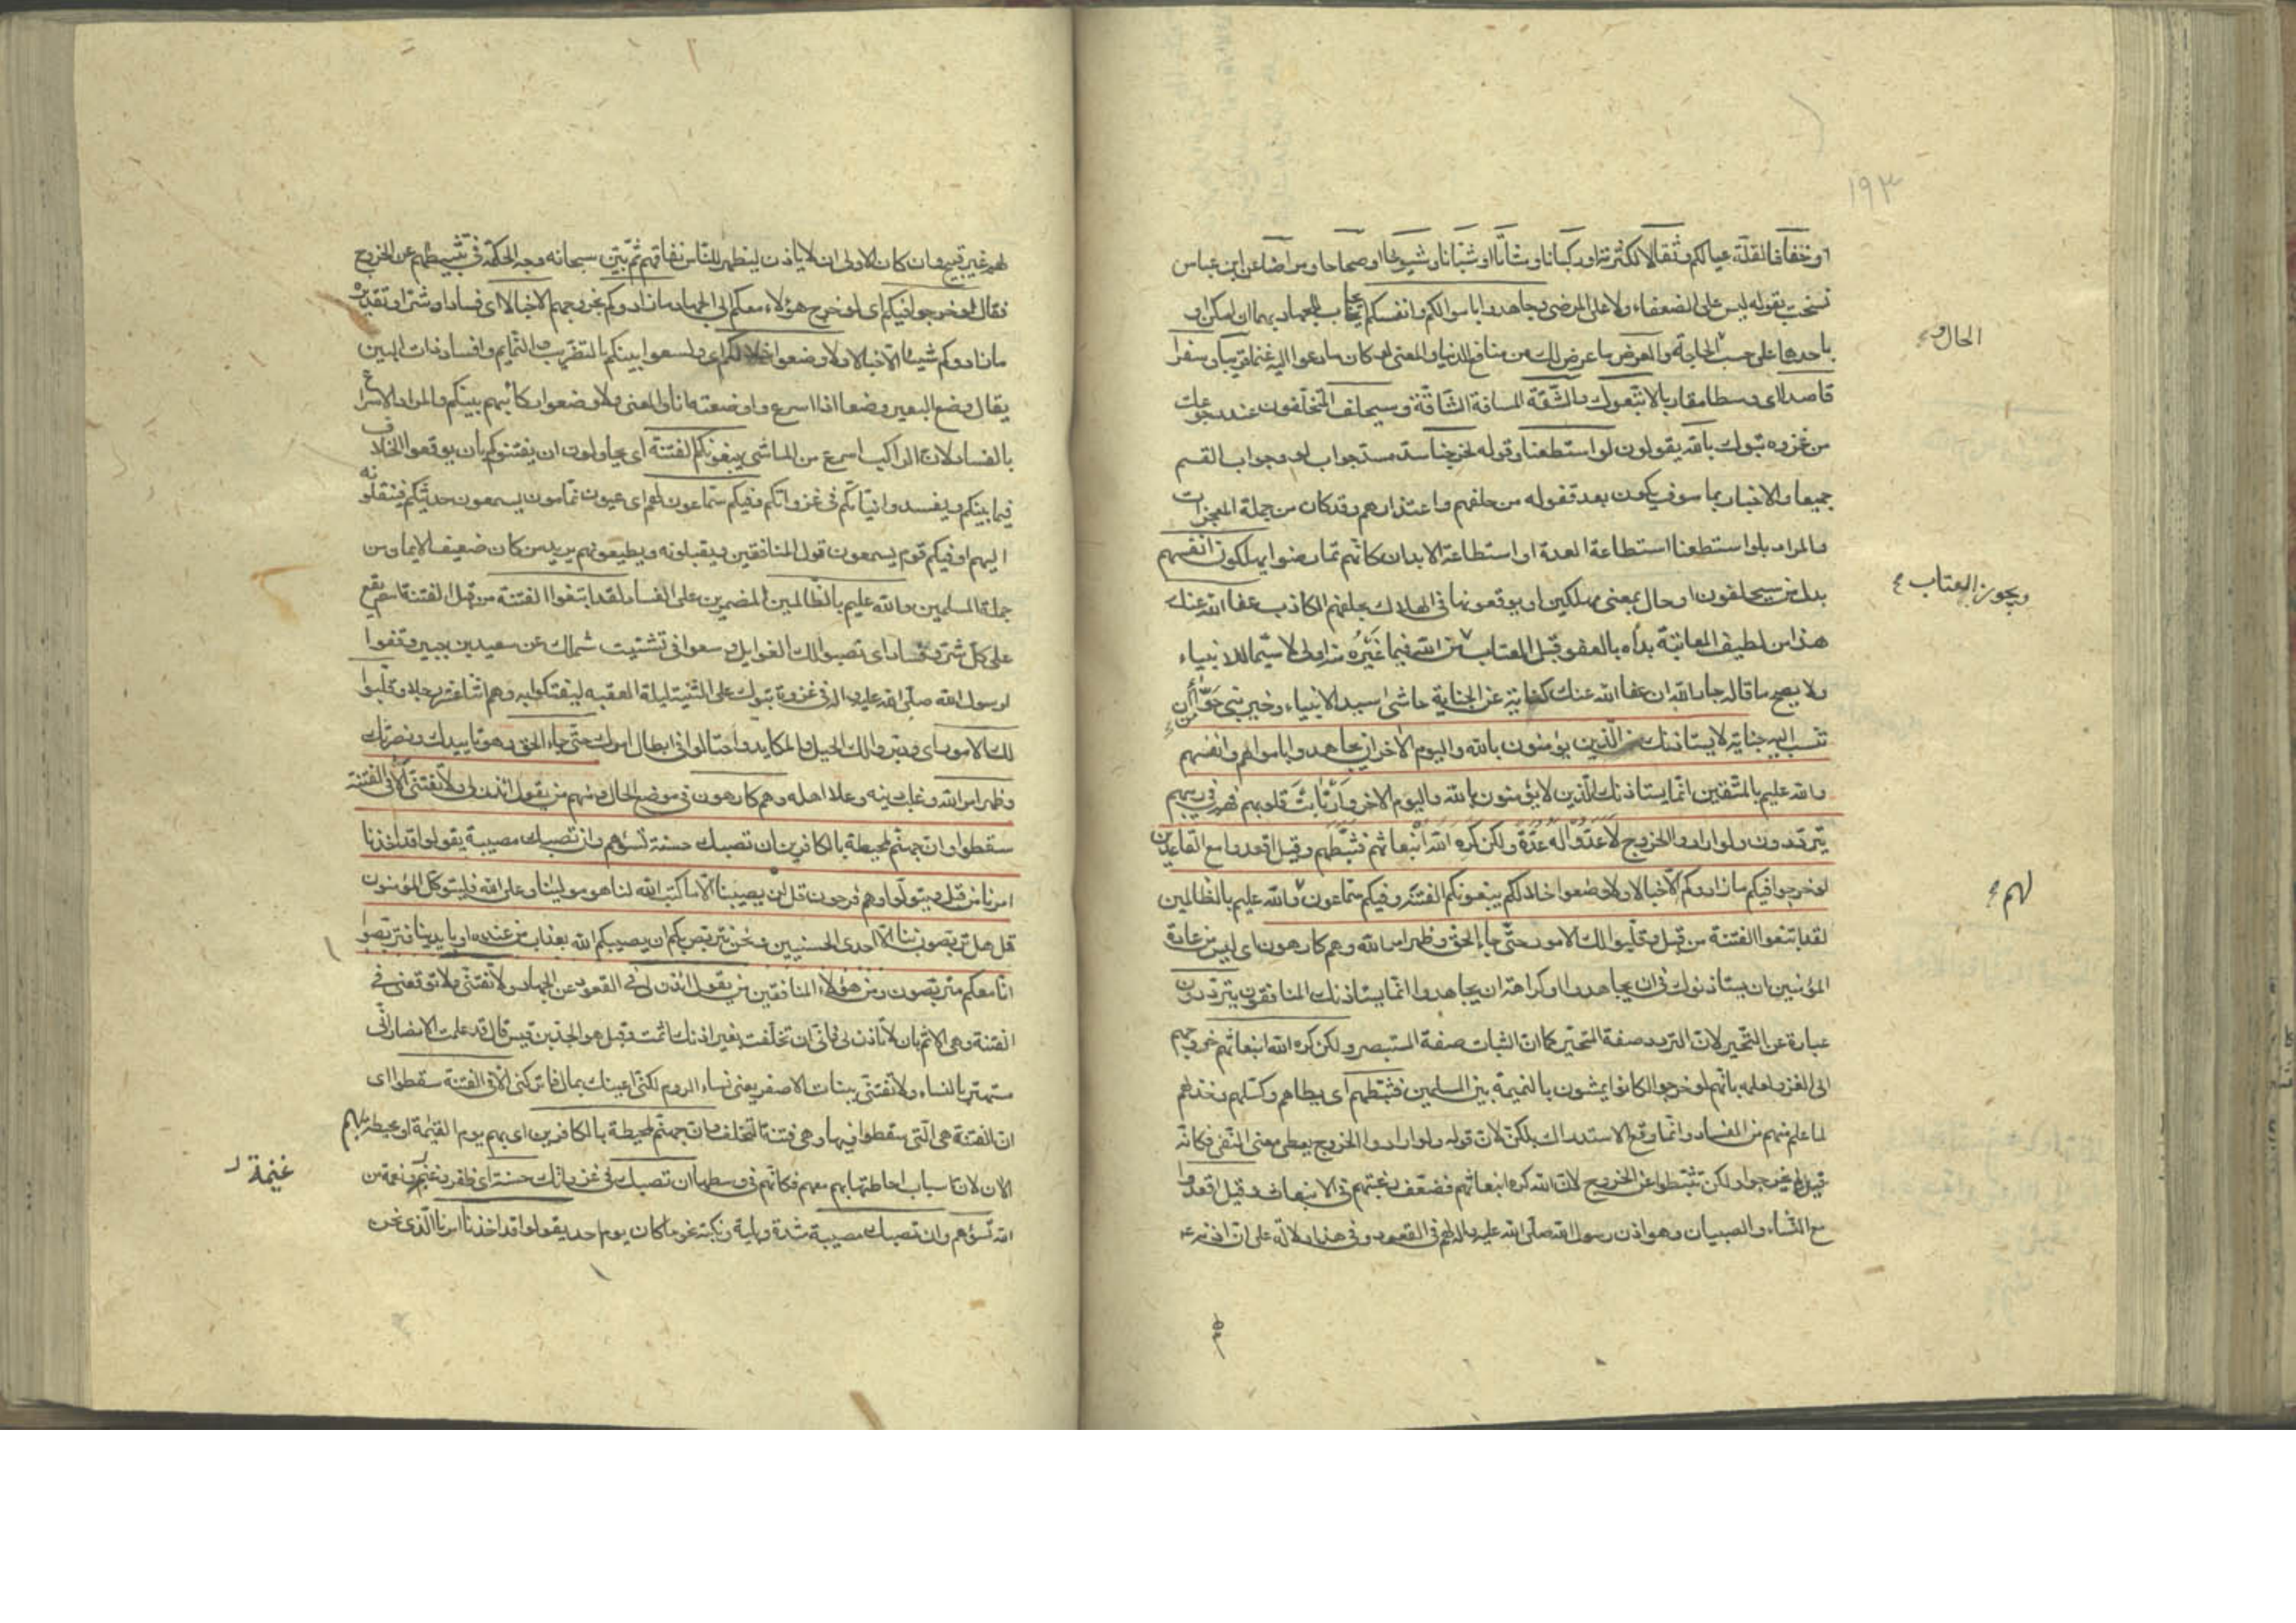 ١٩٣
او خفافا لقلة عيالكم وثقالا لكثرتها او ركبانا ومشاتا او شبانا وشيوخا او صحاحا ومراضا عن ابن عباس
نسخت بقوله ليس على الضعفاء ولا على المرضى وجاهدوا باموالكم وانفسكم ايجاب للجهاد بهما ان امكن او
باحدهما على حسب الحاجة والعرض ما عرض لك من منافع الدنيا والمعنى لو كان ما دعوا اليه غنما قريبا وسفرا
الحال و
قاصدا اى وسطا مقاربا لاتبعوك والشقة المسافة الشاقة وسيحلف المتخلفون عند رجوعك
من غزوة تبوك بالله يقولون لو استطعنا وقوله لخرجنا سد مسد جواب لو وجواب القسم
جميعا والاخبار بما سوف يكون بعد قفوله من حلفهم واعتذارهم وقد كان من جملة المعجزات
والمراد بلو استطعنا استطاعة العدة او استطاعة الابدان كانهم تمارضوا يهلكون انفسهم
بدل من سيحلفون او حال بمعنى مهلكين او يوقعونها فى الهلاك بحلفهم الكاذب عفا الله عنك
ويجوز العتاب
هذا من لطيف المعاتبة بداه بالعفو قبل العتاب من الله فيما غيره منه اولى لا سيما للانبياء
ولا يصح ما قاله جار الله ان عفا الله عنك كناية عن الجناية حاشى سيد الانبياء وخير بنى حوا من أن
تنسب اليه جناية لا يستاذنك الذين يؤمنون بالله واليوم الاخر ان يجاهدوا باموالهم وانفسهم
والله عليم بالمتقين انما يستاذنك الذين لا يؤمنون بالله واليوم الاخر وارتابت قلوبهم فهم فى ريبهم
يترددون ولو ارادوا الخروج لاعدوا له عدة ولكن كره الله انبعاثهم فثبطهم وقيل اقعدوا مع القاعدين
لو خرجوا فيكم ما زادوكم الا خبالا ولاوضعوا خلالكم يبغونكم الفتنة وفيكم سماعون والله عليم بالظالمين
لهم
لقد ابتغوا الفتنة من قبل وقلبوا لك الامور حتى جاء الحق وظهر امر الله وهم كارهون اى ليس من عادة
المؤمنين ان يستاذنوك فى ان يجاهدوا او كراهة ان يجاهدوا انما يستاذنك المنافقون يترددون
عبارة عن التحير لان التردد صفة المتحير كما ان الثبات صفة المستبصر ولكن كره الله انبعاثهم خروجهم
الى الغزو لعلمه بانهم لو خرجوا لكانوا يمشون بالنميمة بين المسلمين فثبطهم اى بطاهم وكسلهم وخذلهم
لما علم منهم من الفساد وانما وقع الاستدراك بلكن لان قوله ولو ارادوا الخروج يعطى معنى النفى فكانه
قيل لم يخرجوا ولكن تثبطوا عن الخروج لان الله كره انبعاثهم فضعف رغبتهم فى الانبعاث وقيل اقعدوا
مع النساء والصبيان وهو اذن رسول الله صلى الله عليه واله لهم فى القعود وفى هذا دلالة على ان اذنه
لهم غير قبيح وان كان الاولى ان لا ياذن ليظهر للناس نفاقهم ثم بين سبحانه وجه الحكمة فى تثبيطهم عن الخروج
فقال لو خرجوا فيكم اى لو خرج هؤلاء معكم الى الجهاد ما زادوكم بخروجهم الا خبالا اى فسادا وشرا وتقديره
ما زادوكم شيئا الا خبالا ولاوضعوا خلالكم اى ولسعوا بينكم بالتضريب والنمايم وافساد ذات البين
يقال وضع البعير وضعا اذا اسرع واوضعته انا والمعنى ولاوضعوا ركائبهم بينكم والمراد الاسراع
بالفساد لان الراكب اسرع من الماشى يبغونكم الفتنة اى يحاولون ان يفتنوكم بان يوقعوا الخلاف
فيما بينكم ويفسدوا نياتكم فى غزواتكم وفيكم سماعون لهم اى عيون نمامون يسمعون حديثكم فينقلونه
اليهم او فيكم قوم يسمعون قول المنافقين ويقبلونه ويطيعونهم يريد من كان ضعيف الايمان من
جملة المسلمين والله عليم بالظالمين المضمرين على الفساد لقد ابتغوا الفتنة من قبل الفتنة اسم يقع
على كل شر وفساد اى نصبوا لك الغوايل وسعوا فى تشتيت شملك عن سعيد بن جبير وقفوا
لرسول الله صلى الله عليه واله فى غزوة تبوك على الثنية ليلة العقبة ليفتكوا به وهم اثنا عشر رجلا وقلبوا
لك الامور اى ودبروا لك الحيل والمكايد واحتالوا فى ابطال امرك حتى جاء الحق وهو تاييدك ونصرتك
وظهر امر الله وغلب دينه وعلا اهله وهم كارهون فى موضع الحال ومنهم من يقول ائذن لى ولا تفتنى الا فى الفتنة
سقطوا وان جهنم لمحيطة بالكافرين ان تصبك حسنة تسؤهم وان تصبك مصيبة يقولوا قد اخذنا
امرنا من قبل ويتولوا وهم فرحون قل لن يصيبنا الا ما كتب الله لنا هو مولينا وعلى الله فليتوكل المؤمنون
قل هل تربصون بنا الا احدى الحسنيين ونحن نتربص بكم ان يصيبكم الله بعذاب من عنده او بايدينا فتربصوا
انا معكم متربصون ومن هؤلاء المنافقين من يقول ائذن لى فى القعود عن الجهاد ولا تفتنى ولا توقعنى فى
الفتنة وهى الاثم بان لا تاذن لى فانى ان تخلفت بغير اذنك اثمت وقيل هو الجد بن قيس قال قد علمت الانصار انى
مستهتر بالنساء ولا تفتنى ببنات الاصفر يعنى نساء الروم لكنى اعينك بمال فاتركنى الا فى الفتنة سقطوا اى
ان الفتنة هى التى سقطوا فيها وهى فتنة التخلف وان جهنم لمحيطة بالكافرين اى بهم يوم القيمة او محيطة بهم
الان لان اسباب احاطتها بهم معهم فكانهم فى وسطها ان تصبك فى غزواتك حسنة اى ظفر وغنم ونعمة من
غنيمة
الله تسؤهم وان تصبك مصيبة شدة وبلية ونكبة نحو ما كان يوم احد يقولوا قد اخذنا امرنا الذى نحن